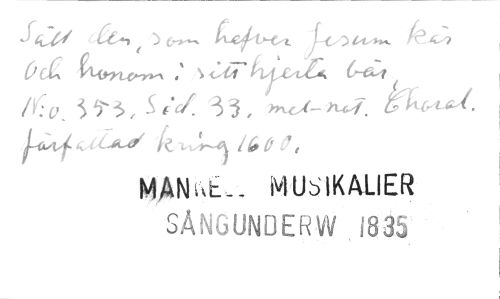 Säll den, som hafver Jesum kär
Och honom i sitt hjerta bär,
N:o. 353. Sid. 33. mel-not. Choral.
författad kring 1600.
MANKELL MUSIKALIER
SÅNGUNDERW 1835